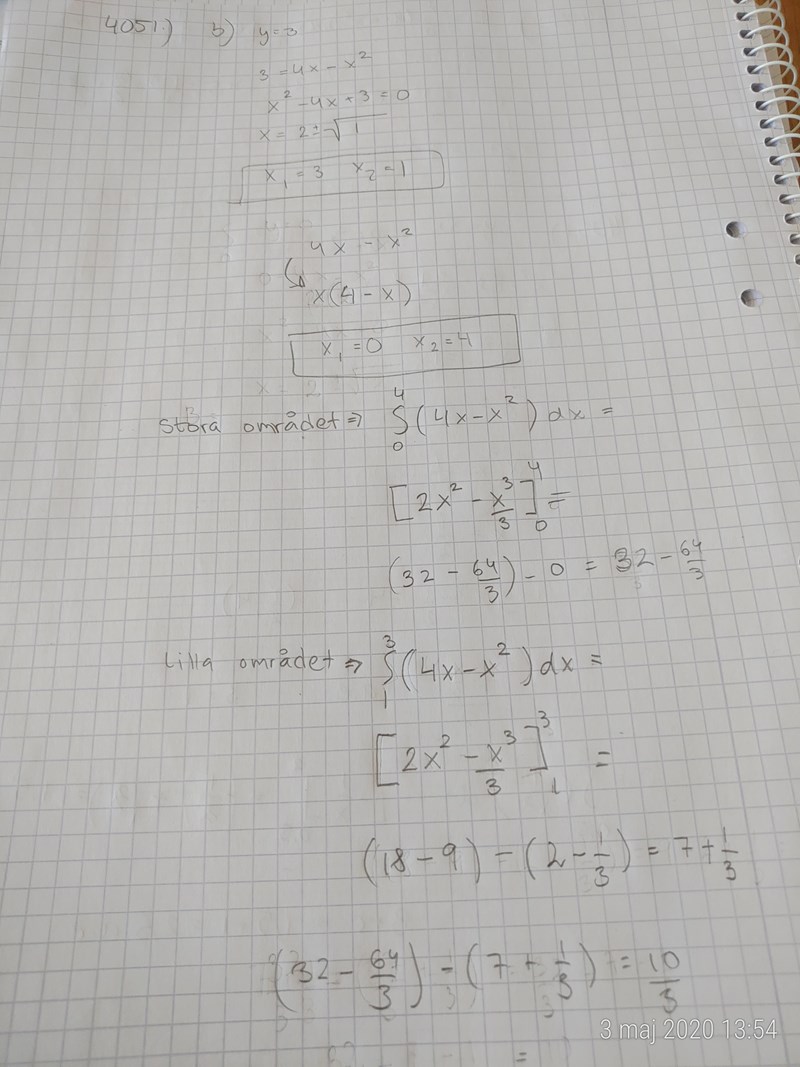 4051) b) y=3
3 = 4x - x²
x² - 4x + 3 = 0
x = 2 ± √1
x₁ = 3 x₂ = 1
4x - x²
x(4 - x)
x₁ = 0 x₂ = 4
Stora området ⇒ ∫₀⁴ (4x - x²) dx =
[2x² - x³/3]₀⁴ =
(32 - 64/3) - 0 = 32 - 64/3
Lilla området ⇒ ∫₁³ (4x - x²) dx =
[2x² - x³/3]₁³ =
(18 - 9) - (2 - 1/3) = 7 + 1/3
(32 - 64/3) - (7 + 1/3) = 10/3
3 maj 2020 13:54
=